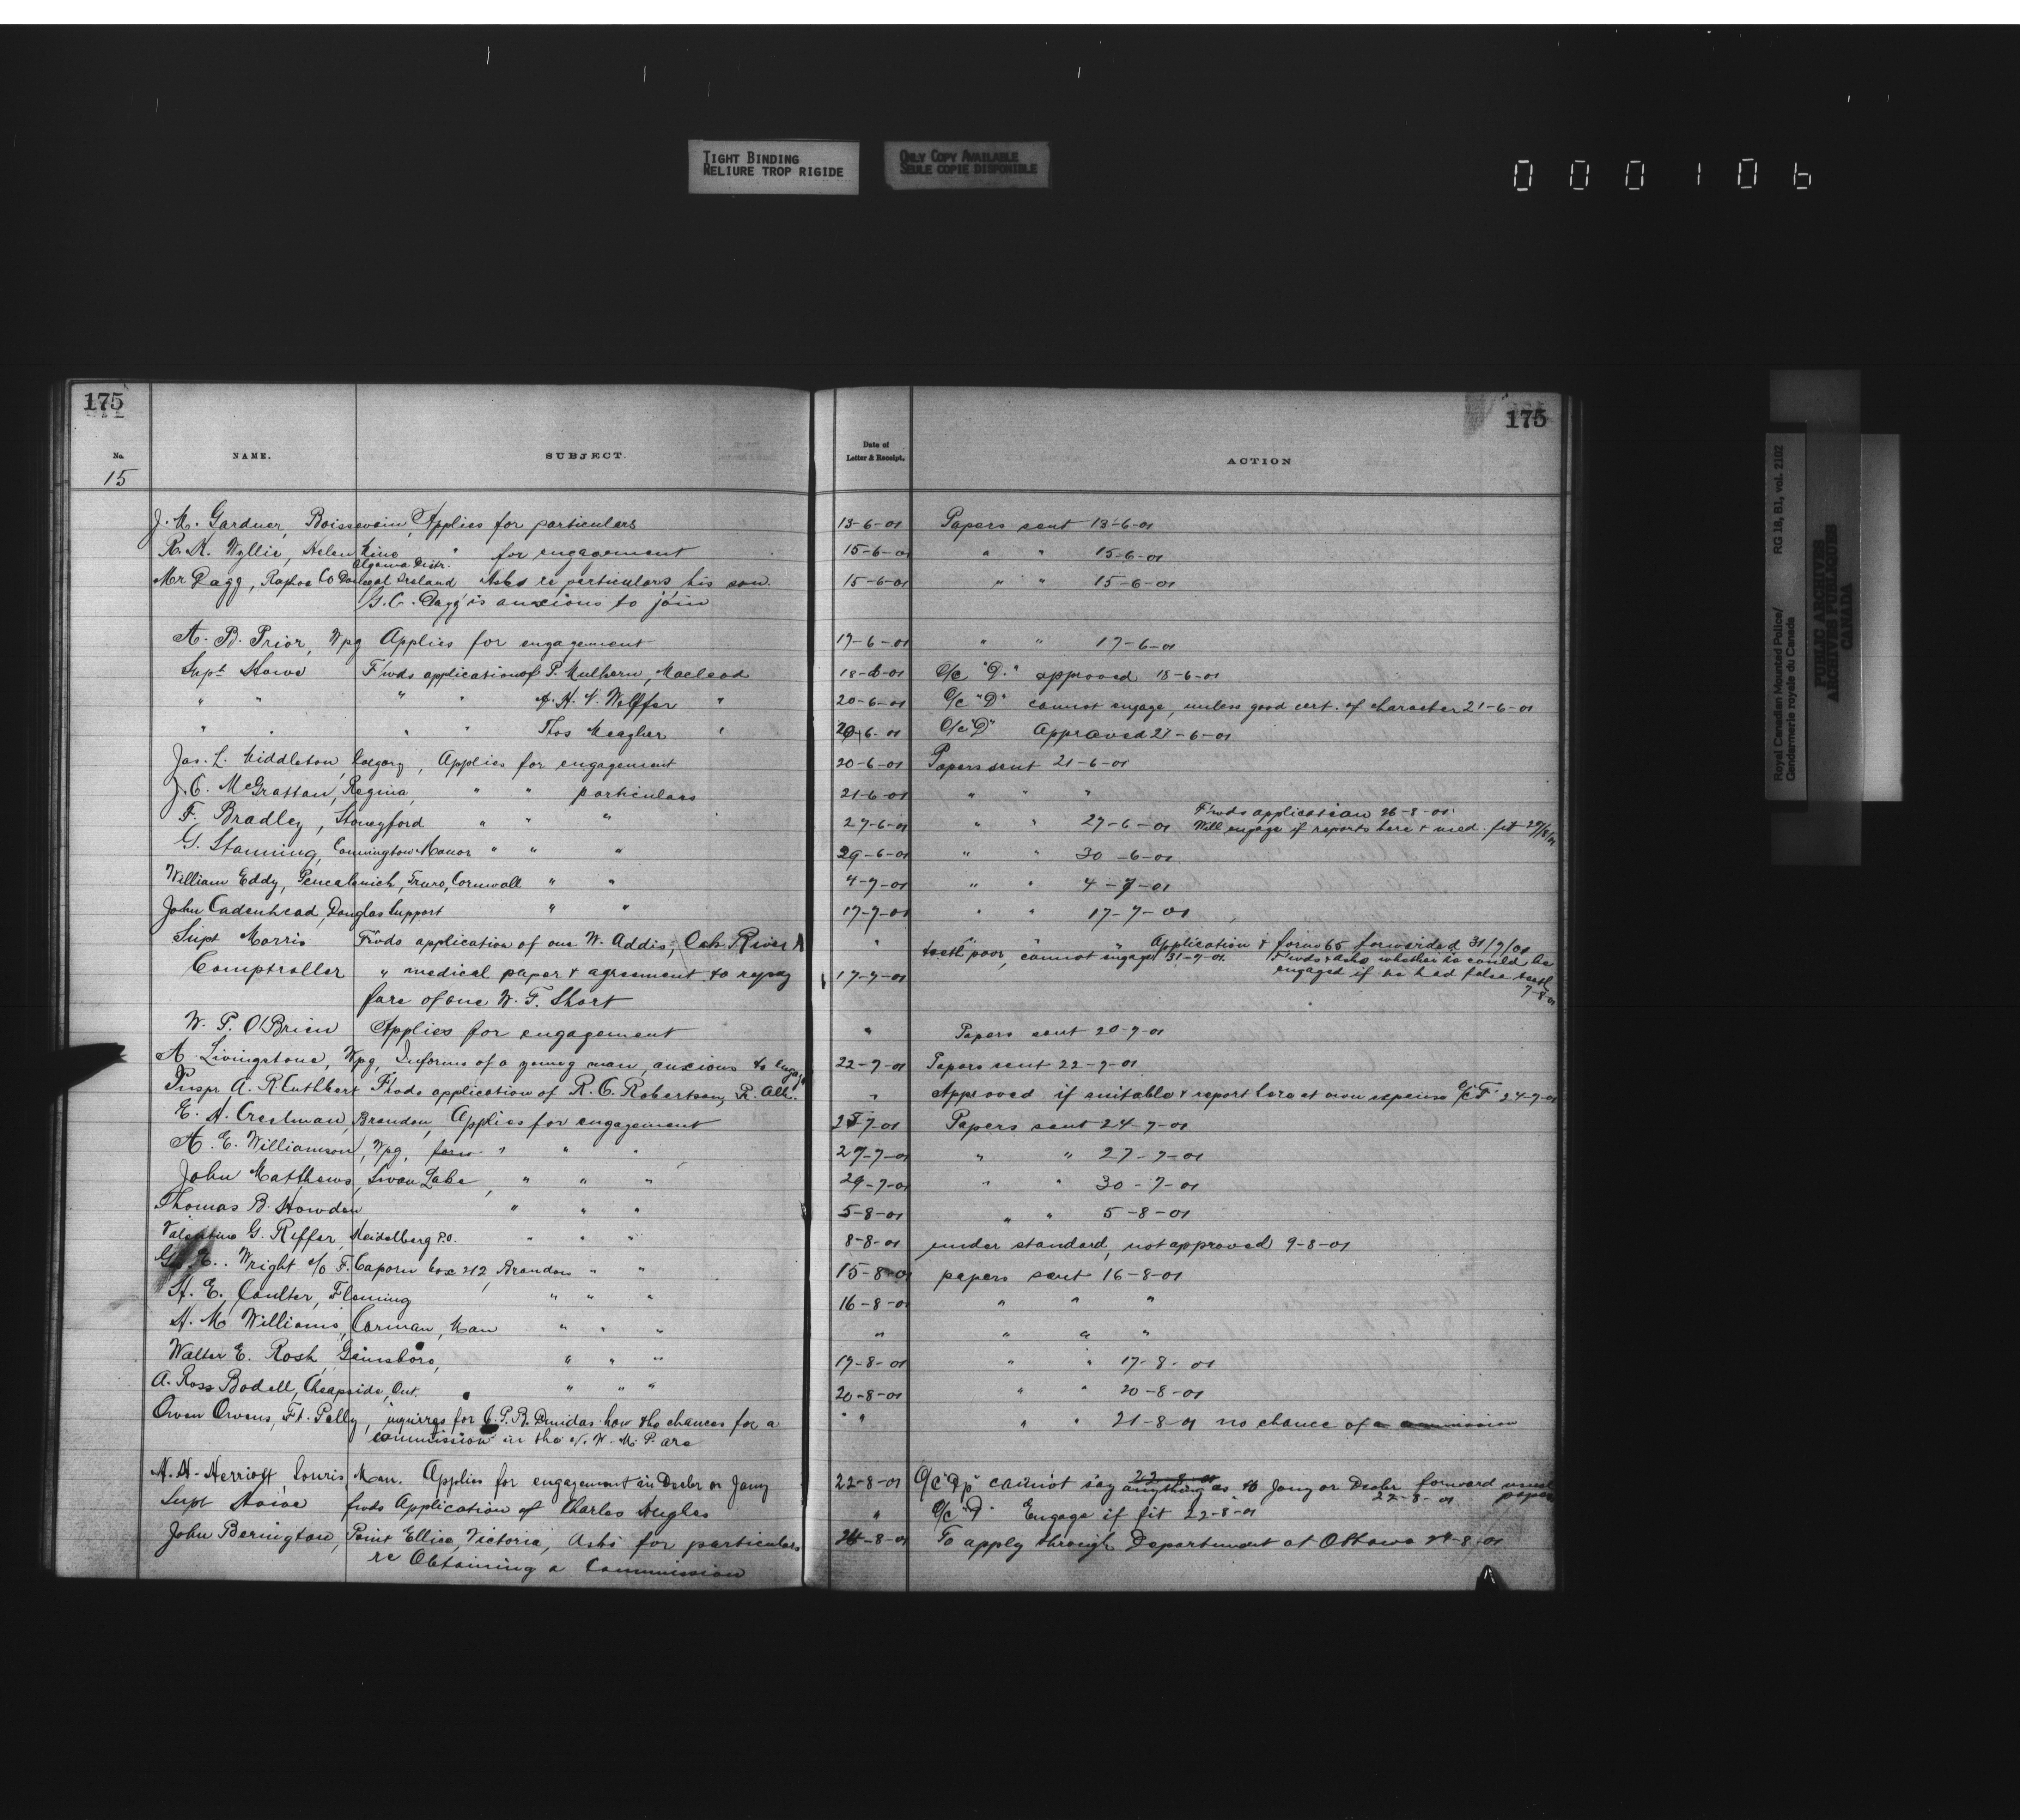 TIGHT BINDING
RELIURE TROP RIGIDE
ONLY COPY AVAILABLE
SEULE COPIE DISPONIBLE
000106
175
175
No.
NAME.
SUBJECT.
Date of
Letter & Receipt.
ACTION
15
J. M. Gardner, Boissevain, Applies for particulars 13-6-01 Papers sent 13-6-01
R. R. Wyllie, Helen Mine " for engagement 15-6-01 " " 15-6-01
Algoma Distr.
Mr Dagg, Raphoe Co Donegal Ireland Asks re particulars his son 15-6-01 " " 15-6-01
G. C. Dagg is anxious to join
A. B. Prior, Wpg Applies for engagement 17-6-01 " " 17-6-01
Supt Howe F'wds application of P. Mulhern, Macleod 18-6-01 O/c "D." approved 18-6-01
" " " " A. H. V. " 20-6-01 O/c "D" cannot engage, unless good cert. of character 21-6-01
" " " " Thos Meagher " 20-6-01 O/c "D" Approved 21-6-01
Jas. L. Middleton, Calgary, Applies for engagement 20-6-01 Papers sent 21-6-01
J. C. McGrattan, Regina, " " particulars 21-6-01 " " "
F'wds application 26-8-01
F. Bradley, Stoneyford " " " 27-6-01 " " 27-6-01 Will engage if reports here & med. fit
G. Stanning, Cannington Manor " " " 29-6-01 " " 30-6-01
William Eddy, Truro, Cornwall " " 4-7-01 " " 4-7-01
John Cadenhead, Douglas Support " " 17-7-01 " " 17-7-01
Supt Morris F'wds application of one W. Addis, Oak River " " " " Application & form 65 forwarded 31/7/01
teeth poor, cannot engage 31-7-01. F'wds & asks whether he could be
Comptroller " medical paper & agreement to repay 17-7-01 engaged if he had false teeth
7-8-01
fare of one W. T. Short
W. P. O'Brien Applies for engagement " Papers sent 20-7-01
A. Livingstone, Wpg, Informs of a young man, anxious to engage 22-7-01 Papers sent 22-7-01
Inspr A. R. Cuthbert F'wds application of R. C. Robertson, P. Alb. " Approved if suitable & report here at own expense O/c "F" 24-7-01
E. A. Crestman, Brandon, Applies for engagement 25-7-01 Papers sent 24-7-01
A. E. Williamson, Wpg, " " " 27-7-01 " " 27-7-01
John Matthews, Swan Lake, " " " 29-7-01 " " 30-7-01
Thomas B. Howden " " " 5-8-01 " " 5-8-01
Valentine G. Reffer, Heidelberg P.O. " " " 8-8-01 under standard, not approved 9-8-01
Wright c/o F. Caporn box 212, Brandon " " 15-8-01 papers sent 16-8-01
H. E. Coulter, Fleming " " " 16-8-01 " " "
A. M. Williams, Carman, Man " " " " " " "
Walter E. Rosh, Gainsboro, " " " 17-8-01 " " 17-8-01
A. Ross Bodell, Cheapside, Ont. " " " 20-8-01 " " 20-8-01
Owen Owens, Ft. Pelly, inquires for C. P. B. Dundas how the chances for a " " " " 21-8-01 no chance of a commission
commission in the N. W. M. P. are
22-8-01
H. H. Herriott Souris, Man. Applies for engagement in Decbr or Jany 22-8-01 O/C "Dp" cannot say anything as to Jany or Decbr forward usual
22-8-01 papers
Supt Howe fwds Application of Charles Hughes " O/c "D" Engage if fit 22-8-01
John Berington, Point Ellice, Victoria, Asks for particulars 24-8-01 To apply through Department at Ottawa 24-8-01
re Obtaining a Commission
Royal Canadian Mounted Police/
Gendarmerie royale du Canada
RG 18, B1, vol. 2102
PUBLIC ARCHIVES
ARCHIVES PUBLIQUES
CANADA